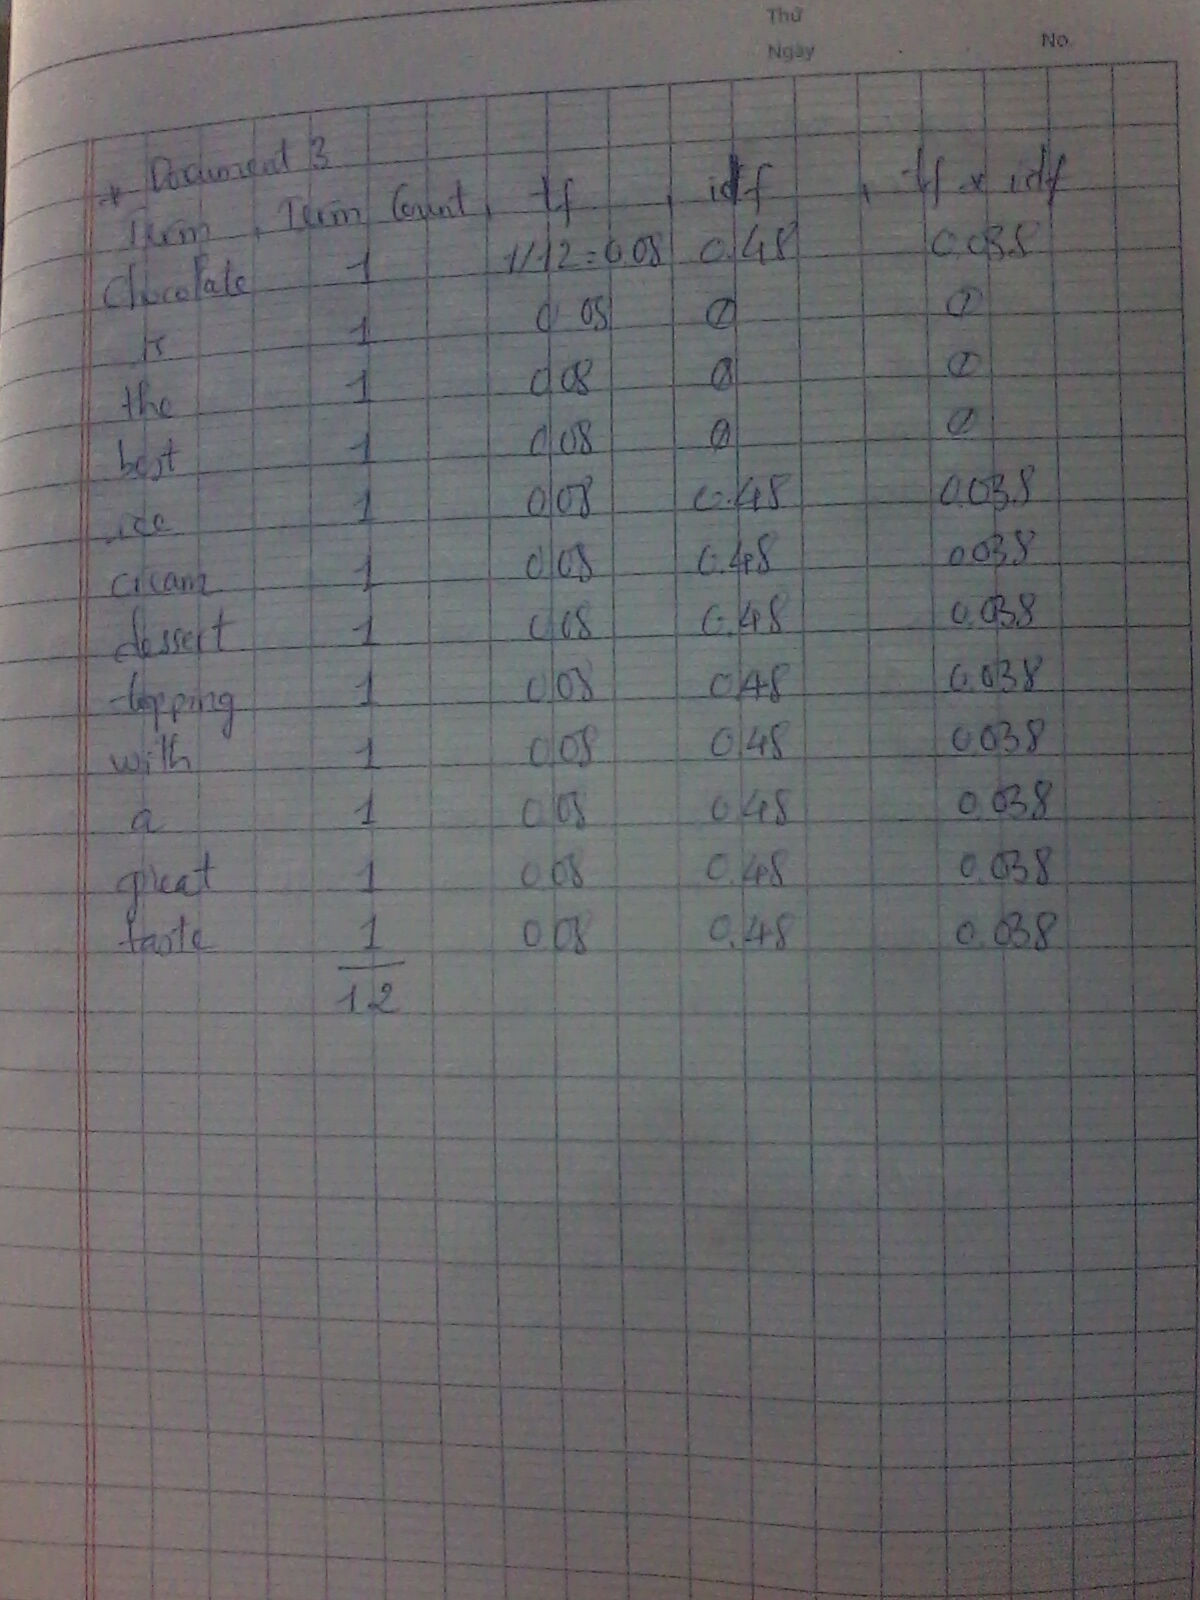 Thứ
Ngày No.
* Document 3
Term, Term Count, tf, idf, tf * idf
Chocolate 1 1/12=0.08 0.48 0.038
is 1 0.08 0 0
the 1 0.08 0 0
best 1 0.08 0 0
ice 1 0.08 0.48 0.038
cream 1 0.08 0.48 0.038
dessert 1 0.08 0.48 0.038
topping 1 0.08 0.48 0.038
with 1 0.08 0.48 0.038
a 1 0.08 0.48 0.038
great 1 0.08 0.48 0.038
taste 1 0.08 0.48 0.038
12